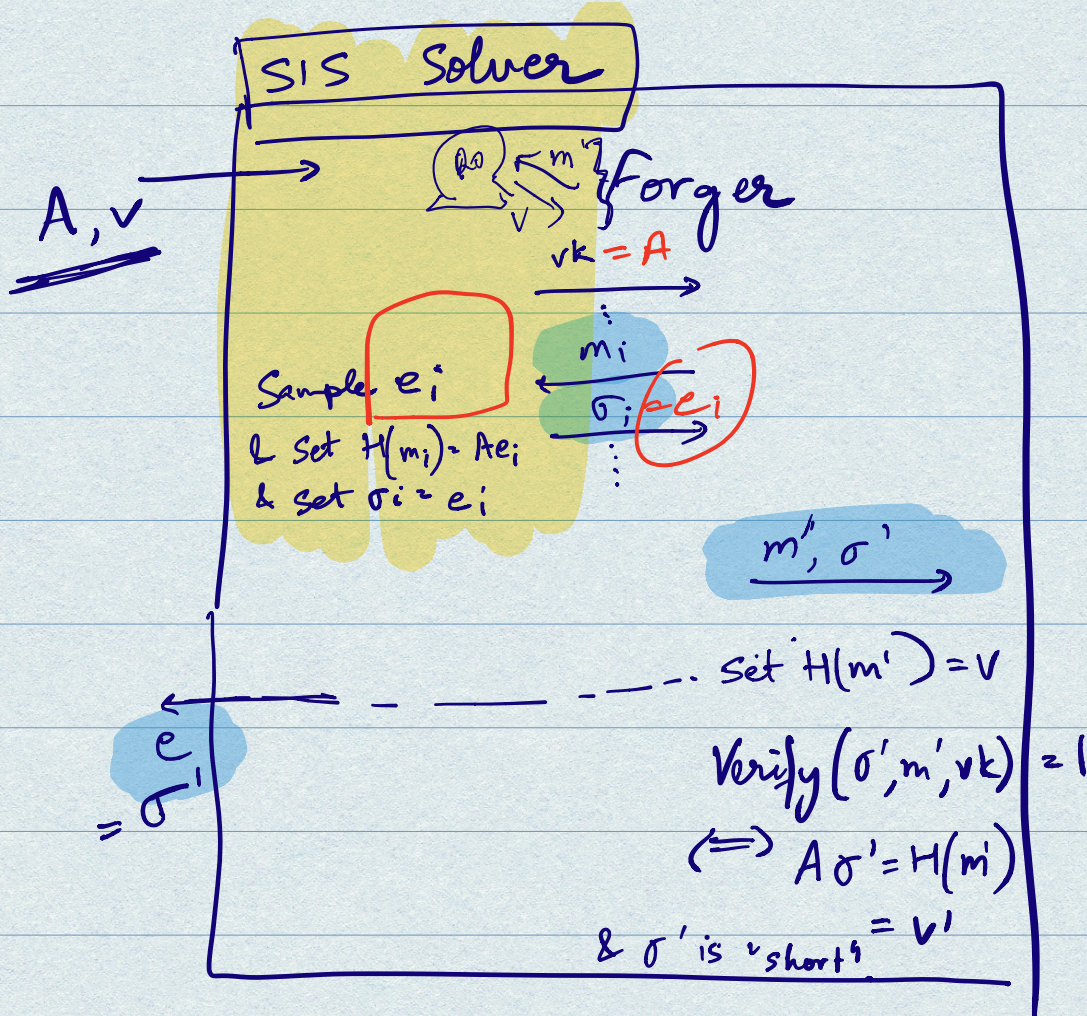 SIS Solver
A, v
Ro m'
v
Forger
vk = A
m i
Sample e i
σ i = e i
& set H(m i) = Ae i
& set σ i = e i
m', σ'
set H(m') = v
e
= σ'
Verify (σ', m', vk) = 1
(⟺) A σ' = H(m')
= v'
& σ' is "short"